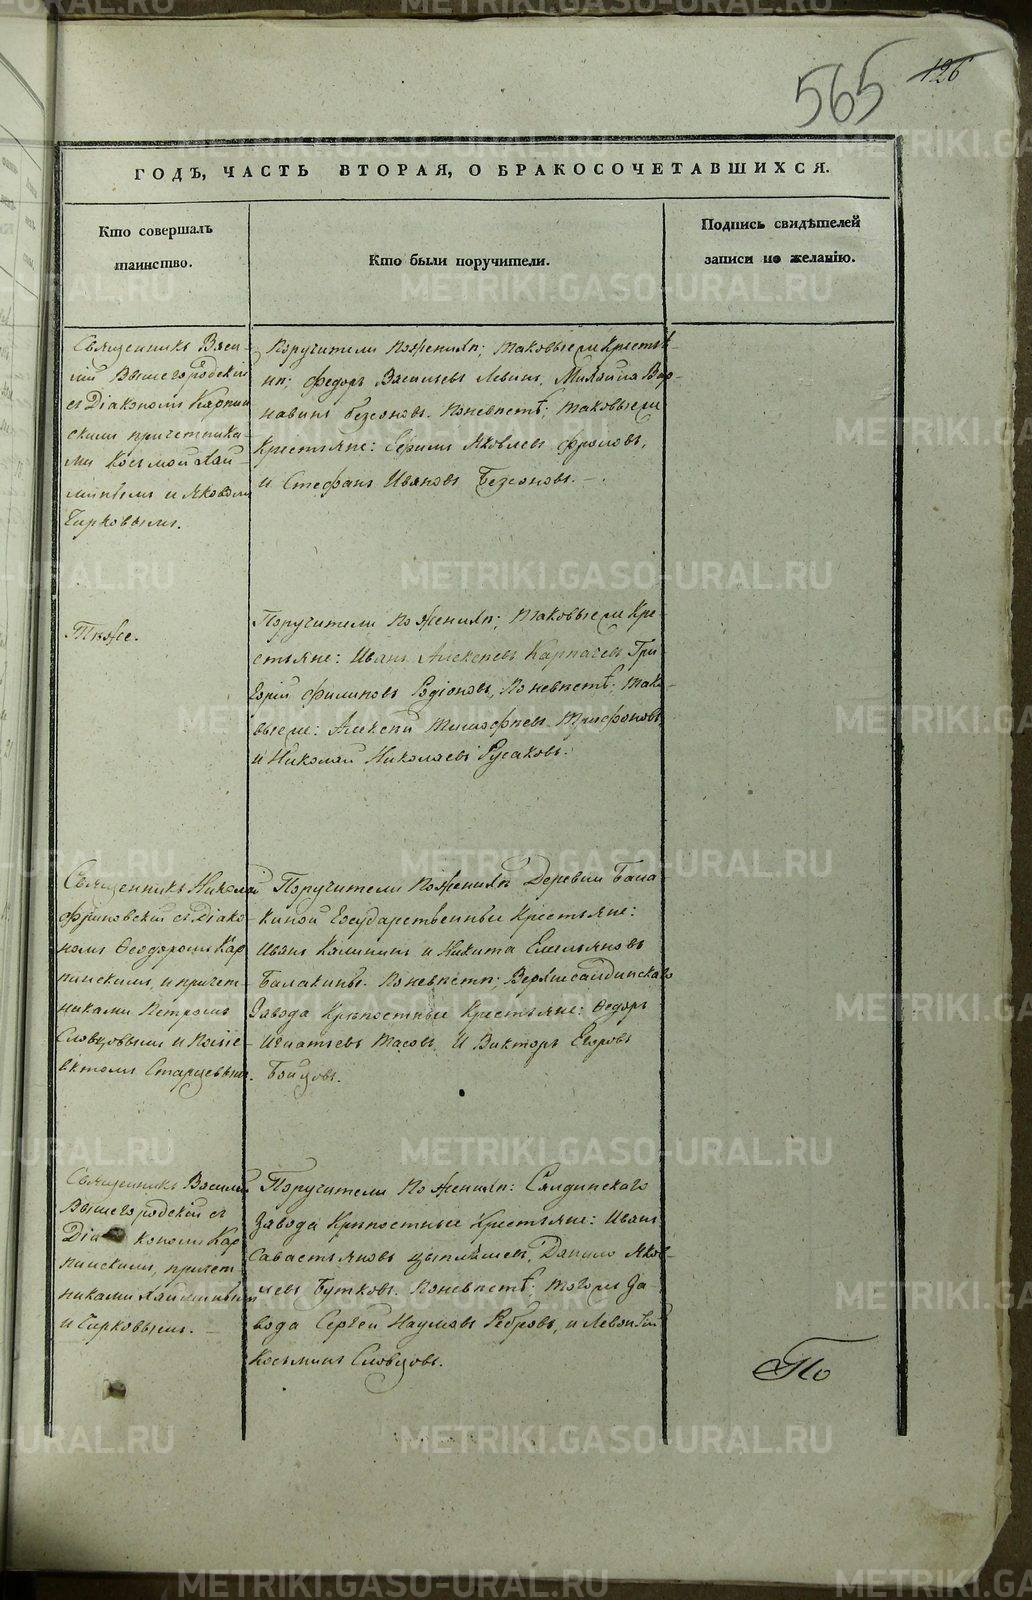 565 126
ГОДЪ, ЧАСТЬ ВТОРАЯ, О БРАКОСОЧЕТАВШИХСЯ.
Кто совершалъ
таинство.
Кто были поручители.
Подпись свидѣтелей
записи по желанію.
Священникъ Васи-
лій Вышегородскій
съ Діакономъ Карпин
скимъ причетника-
ми Косьмой
и Яковомъ
Чирковымъ.
Поручители по женихѣ; таковыежъ Крестья-
не; Федоръ Васильевъ Левинъ, Михайла Вар-
навинъ Безсоновъ. По невѣстѣ; таковыежъ
Крестьяне: Ефимъ Яковлевъ Фроловъ,
и Стефанъ Ивановъ Безсоновъ.
Тѣже.
Поручители по женихѣ; таковыежъ Кре-
стьяне: Иванъ Алексѣевъ Карпачевъ Гри
горій Филиповъ Родіоновъ, По невѣстѣ; тако-
выежъ: Алексѣй Тимофѣевъ Трифоновъ,
и Николай Николаевъ Русаковъ.
Священникъ Николай
съ Діако-
номъ Ѳеодоромъ Кар
пинскимъ, и причет-
никами Петромъ
Словцовымъ и
Старцевымъ.
Поручители по женихѣ Деревни Бала-
киной Государственные Крестьяне:
Иванъ Калининъ и Никита Емельяновъ
Балакины. По невѣстѣ; Верхнесалдинскаго
Завода Крѣпостные Крестьяне: Ѳедоръ
Игнатьевъ Масовъ, И Викторъ Егоровъ
Бойцовъ.
Священникъ Василій
Вышегородскій съ
Діакономъ Кар
пинскимъ, причет-
никами
и Чирковымъ.
Поручители по женихѣ: Салдинскаго
Завода Крѣпостные Крестьяне: Иванъ
Савастьяновъ Данило Яков-
левъ Бутковъ. По невѣстѣ; тогожъ За-
вода Сергей Наумовъ Ребровъ, и Левонтій
Косьминъ Словцовъ.
По
METRIKI.GASO-URAL.RU